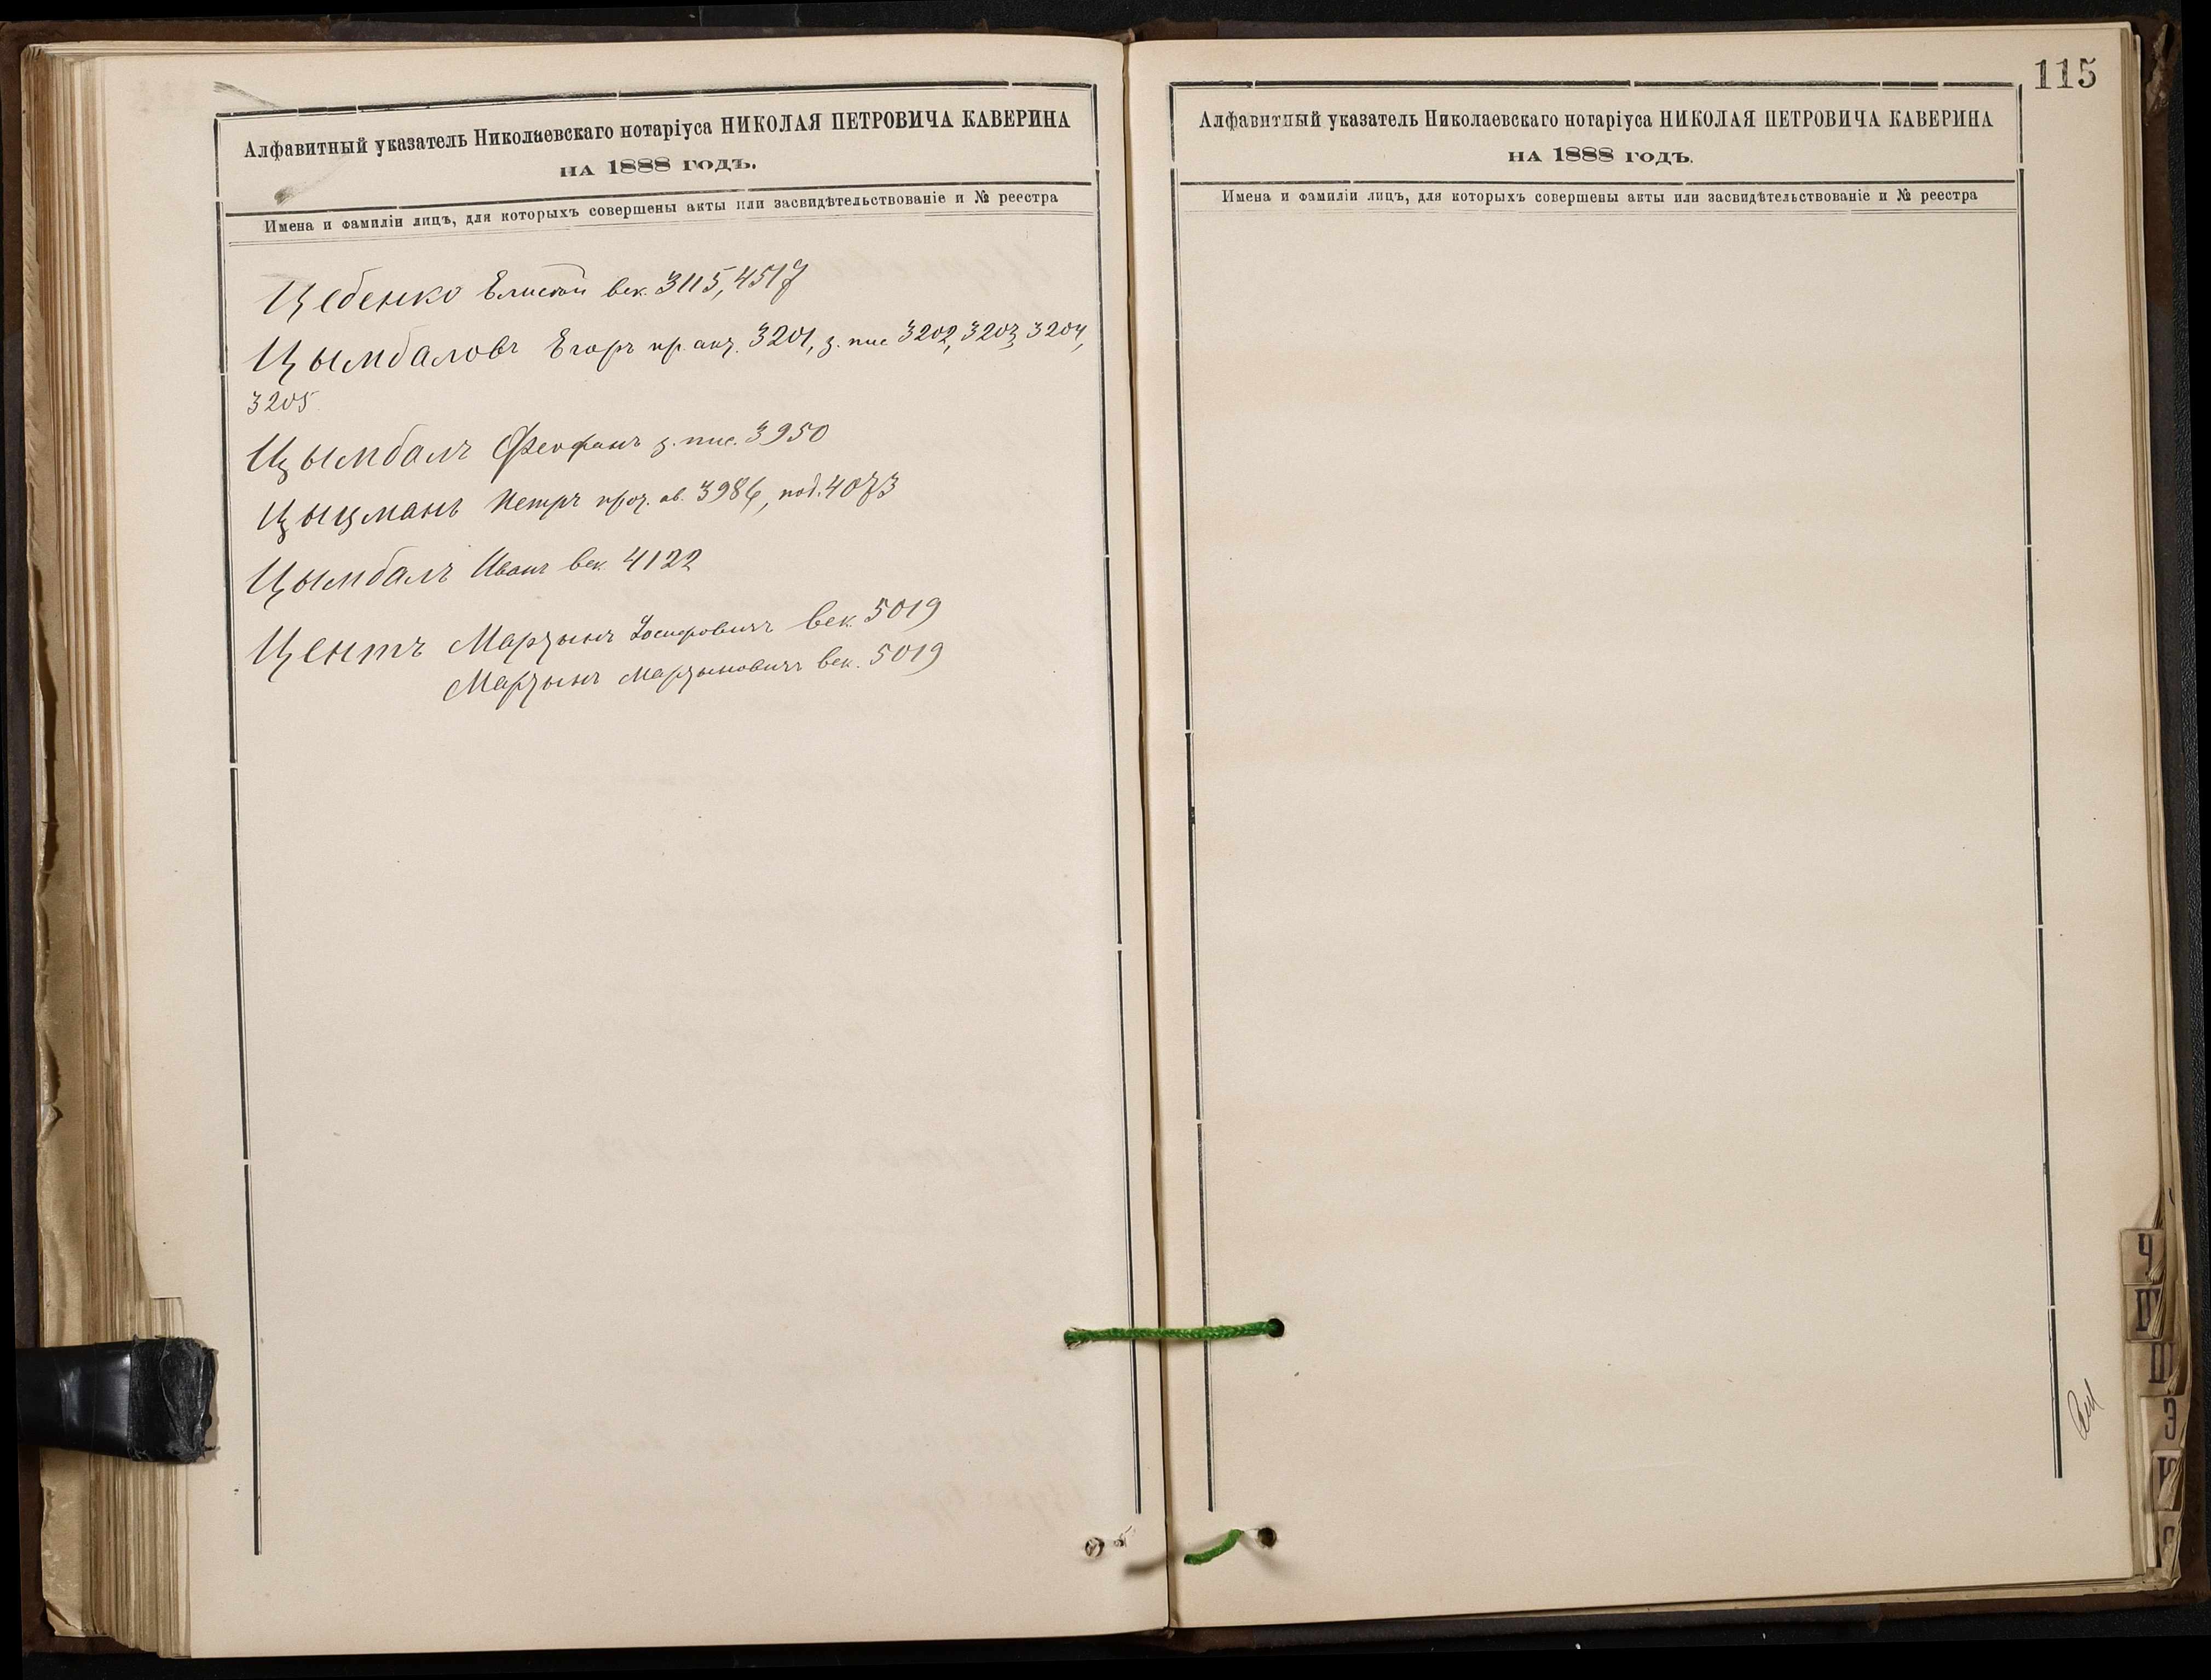 Алфавитный указатель Николаевскаго нотаріуса НИКОЛАЯ ПЕТРОВИЧА КАВЕРИНА
НА 1888 ГОДЪ.
Имена и фамиліи лицъ, для которыхъ совершены акты или засвидѣтельствованіе и № реестра
Цебенко Елисей век. 3115, 4517
Цымбаловъ Егоръ пр. акц. 3201, з. пис 3202, 3203, 3204,
3205
Цымбалъ Феофанъ з. пис. 3950
Цыцманъ Петръ 3986, под. 4073
Цымбалъ Иванъ век 4122
Центъ Марцынъ Іосифовичъ век. 5019
Марцынъ Марцыновичъ век. 5019
115
Алфавитный указатель Николаевскаго нотаріуса НИКОЛАЯ ПЕТРОВИЧА КАВЕРИНА
НА 1888 ГОДЪ.
Имена и фамиліи лицъ, для которыхъ совершены акты или засвидѣтельствованіе и № реестра
Ч
Э